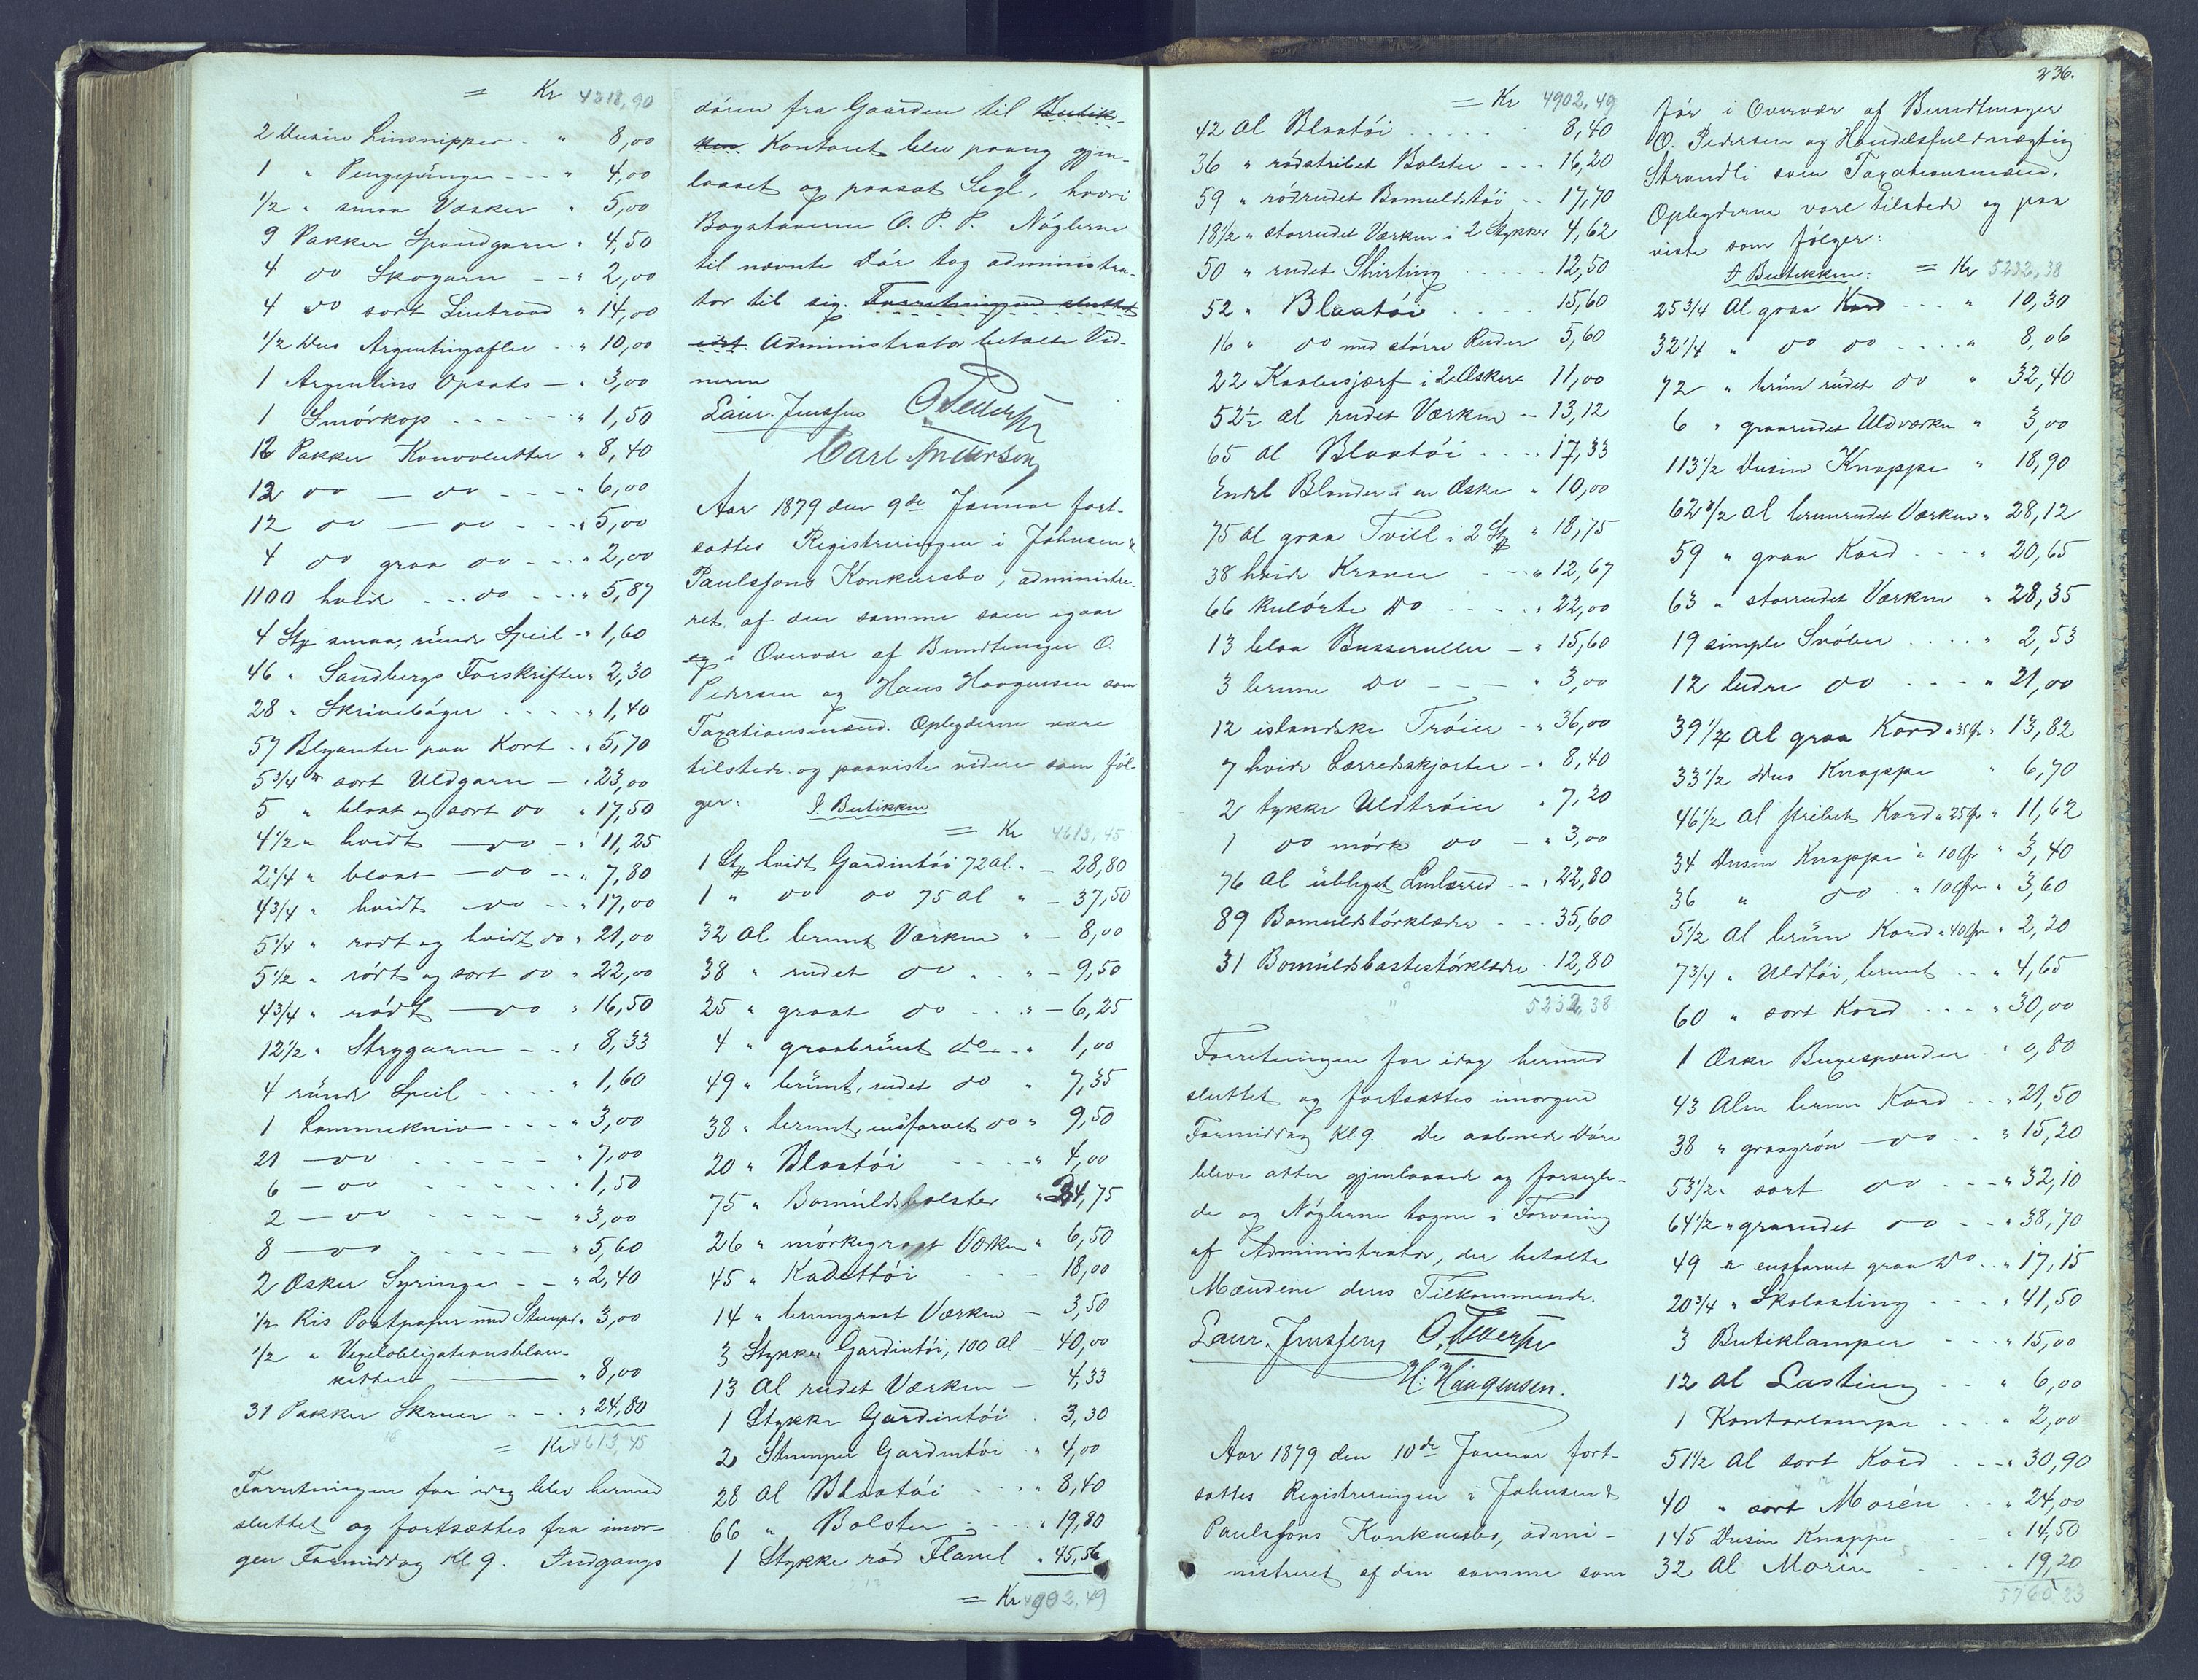 = Kr 4318,90
2 Dusin Linsnipper - " 8,00
1 " Pengepunge - - - " 4,00
1/2 " smaa Væsker " 5,00
9 Pakker Spondgarn " 4,50
4 do Skogarn - - " 2,00
4 do sort Lintraad " 14,00
1/2 Dus Argentingafler - " 10,00
1 Argentins Opsats - " 3,00
1 Smörkop - - - - " 1,50
12 Pakker Konvolutter " 8,40
12 do - do - - - " 6,00
12 do - do - - - " 5,00
4 do graa do - - - " 2,00
1100 hvide - - do - - - " 5,87
4 Stk smaa, runde Speil - " 1,60
46 " Sandbergs Forskrifter " 2,30
28 " Skriveböger - - - " 1,40
57 Blyanter paa Kort - " 5,70
5 3/4 " sort Uldgarn - " 23,00
5 " blaat og sort do " 17,50
4 1/2 " hvidt - do - " 11,25
2 1/4 " blaat - do - - " 7,80
4 3/4 " hvidt - do - " 17,00
5 1/4 " rødt og hvidt do " 21,00
5 1/2 " rödt og sort do " 22,00
4 3/4 " rödt - do " 16,50
12 1/2 " Strygarn - - " 8,33
4 runde Speil - - - " 1,60
1 Lommekniv - - - " 3,00
21 - do - - - - - " 7,00
6 - do - - - - - " 1,50
2 - do - - - - " 3,00
8 - do - - - - " 5,60
2 Æsker Syringe - - " 2,40
1/2 Ris Postpapir med Stempel " 3,00
1/2 " Vexelobligationsblan-
ketter - " 8,00
31 Pakker Skruer - - " 24,80
= Kr 4613,45
Forretningen for idag blev hermed
sluttet og fortsættes fra imor-
gen Formiddag Kl 9. Indgangs
dören fra Gaarden til Butik-
ken Kontoret blev paany gjen-
laaset og paasat Segl, hvori
Bogstaverne O. P. P. Nöglerne
til nævnte Dör tog administra-
tor til sig. Forretningen sluttet
idet. Administrator betalte Vid-
nerne
Laur. Jenssen O. Pedersen
Carl Andersen
Aar 1879 den 9de Januar fort-
sattes Registreringen i Johnsen &
Paulssons Konkursbo, administre-
ret af den samme som igaar
og i Overvær af Bundtmager O.
Pedersen og Hans Haagensen som
Taxationsmænd. Opbyderne vare
tilstede og paaviste videre som föl-
ger: I Butikken
= Kr 4613,45
1 Stk hvidt Gardintöi 72 al. - 28,80
1 " do do 75 al " - 37,50
32 Al brunt Værken " - 8,00
38 " rudet do - " - 9,50
25 " graat do - - " - 6,25
4 " graabrunt do - " 1,00
49 " brunt, rudet do " 7,35
38 " brunt, ensfarvet do " 9,50
20 " Blaatöi - - - " 4,00
75 " Bomuldsbolster " 24,75
26 " mörkegraat Værken " 6,50
45 " Kadettöi - - 18,00
14 " brungraat Værken - 3,50
3 Stykker Gardintöi, 100 al - 40,00
13 Al rudet Værken - 4,33
1 Stykke Gardintöi - 3,30
2 Stumper Gardintöi - " 4,00
28 al Blaatöi - - - " 8,40
66 " Bolster - - - " 19,80
1 Stykke röd Flanel " 45,56
= Kr 4902,49
236.
= Kr 4902,49
42 al Blaatöi - - - - 8,40
36 " rödstribet Bolster - - - 16,20
59 " rödrudet Bomuldstöi - - 17,70
18 1/2 " storrudet Værken i 2 Stykker 4,62
50 " rudet Shirting - - - - 12,50
52 " Blaatöi - - - - 15,60
16 " do med större Ruder 5,60
22 Kraveskjærf i 2 Æsker 11,00
52 1/2 al rudet Værken - - 13,12
65 al Blaatöi - - - " 17,33
Endel Blonder i en Æske " 10,00
75 al graa Tvill i 2 Stk " 18,75
38 hvide Kraver - - " 12,67
66 kulörte do - - - " 22,00
13 blaa Busseruller - " 15,60
3 brune do - - " 3,00
12 islandske Tröier - " 36,00
7 hvide Lærredsskjorter - " 8,40
2 tykke Uldtröier " 7,20
1 do mörk do - " 3,00
76 al ubleget Linlærred - - " 22,80
89 Bomuldstörklæder - - - 35,60
31 Bomuldsbastestörklæder - 12,80
5232,38
Forretningen for idag hermed
sluttet og fortsættes imorgen
Formiddag Kl 9. De aabnede Döre
bleve atter gjenlaasede og forsegle-
de og Nöglerne tagne i Forvaring
af Administrator, der betalte
Mændene deres Tilkommende.
Laur. Jenssen O. Pedersen
H. Haagensen.
Aar 1879 den 10de Januar fort-
sattes Registreringen i Johnsen &
Paulssons Konkursbo, admi-
nistreret af den samme som
før i Overvær af Bundtmager
O. Pedersen og Handelsfuldmægtig
Strandli som Taxationsmænd.
Opbyderne vare tilstede og paa
viste som fölger:
I Butikken: = Kr 5232,38
25 3/4 Al graa Kord - - - " 10,30
32 1/4 " do do - - - " 8,06
72 " brun rudet do " 32,40
6 " graarudet Uldværken " 3,00
113 1/2 Dusin Knappe " 18,90
62 1/2 al brunrudet Værken " 28,12
59 " graa Kord - - - " 20,65
63 " storrudet Værken " 28,35
19 simple Svöber - - - " 2,53
12 bedre do - - - " 21,00
39 1/2 al graa Kord a 35 Ør " 13,82
33 1/2 Dus Knappe " 6,70
46 1/2 al stribet Kord a 25 Ør " 11,62
34 Dusin Knappe a 10 Ør " 3,40
36 " do a 10 Ør " 3,60
5 1/2 al brun Kord a 40 Ør " 2,20
7 3/4 " Uldtöi, brunt - - " 4,65
60 " sort Kord - - - " 30,00
1 Æske Buxespænder - " 0,80
43 Alen brun Kord - - " 21,50
38 " graagrön - do - - " 15,20
53 1/2 " sort do - - - " 32,10
64 1/2 " graarudet do - - " 38,70
49 " ensfarvet graa do - - " 17,15
20 3/4 " Skolasting - - - " 41,50
3 Butiklamper - - - " 15,00
12 al Lasting - - " 6,00
1 Kontorlampe - - - " 2,00
51 1/2 al sort Kord - - - " 30,90
40 " sort Morén - - " 24,00
145 Dusin Knappe - " 14,50
32 Al Morén - - - - 19,20
5760,23